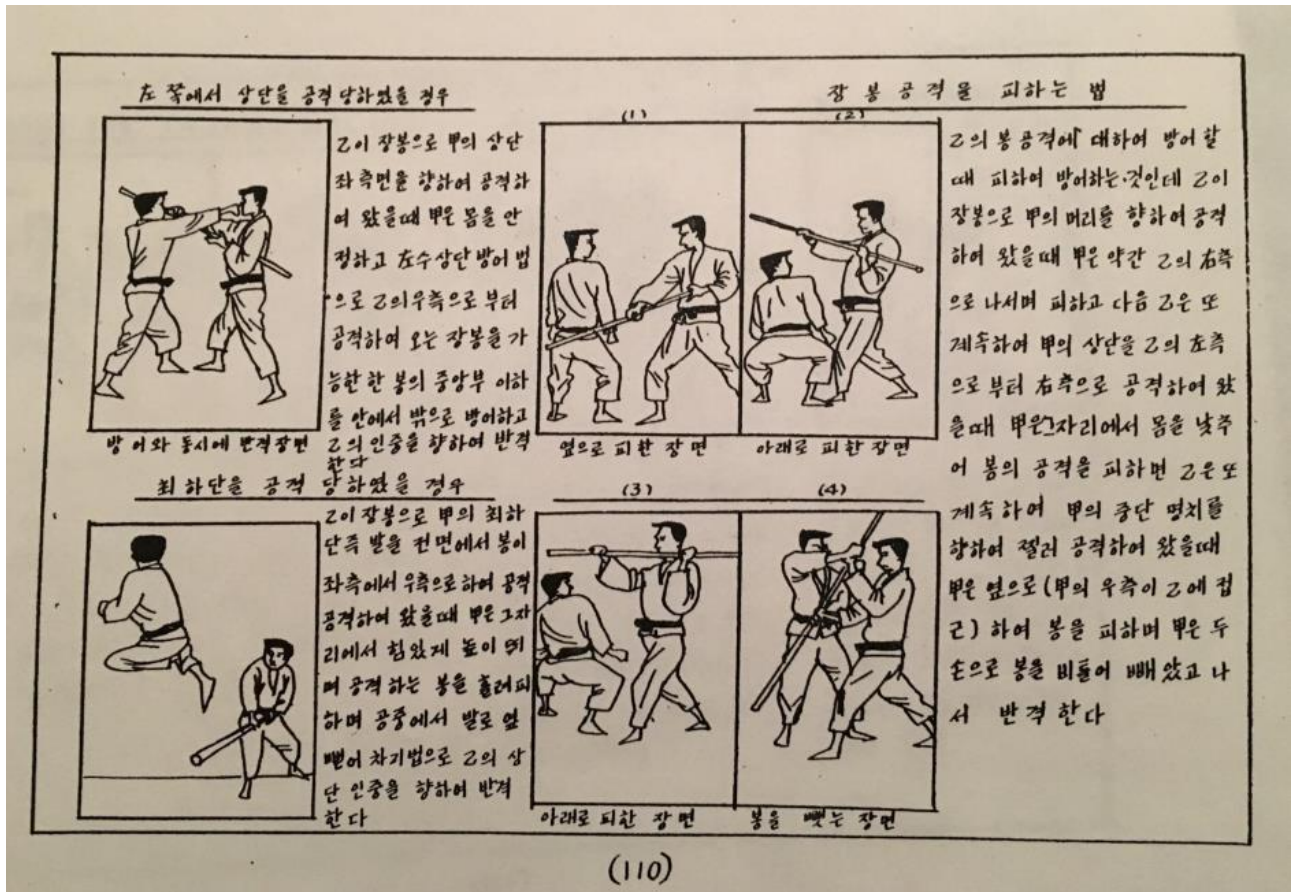 左 쪽에서 상단을 공격 당하였을 경우
乙이 장봉으로 甲의 상단
좌측면을 향하여 공격하
여 왔을때 甲은 몸을 안
정하고 左수상단 방어 법
으로 乙의우측으로 부터
공격하여 오는 장봉을 가
능한한 봉의 중앙부 이하
를 안에서 밖으로 방어하고
乙의 인중을 향하여 반격
한다
방어와 동시에 반격장면
최 하단을 공격 당하였을 경우
乙이 장봉으로 甲의 최하
단즉 발을 전면에서 봉이
좌측에서 우측으로하여 공격
공격하여 왔을때 甲은 그자
리에서 힘있게 높이 뛰
며 공격하는 봉을 흘려피
하며 공중에서 발로 옆
뻗어 차기법으로 乙의 상
단 인중을 향하여 반격
한다
장봉공격을 피하는 법
(1)
(2)
옆으로 피한 장면
아래로 피한 장면
(3)
(4)
아래로 피한 장면
봉을 뺏는 장면
乙의 봉공격에 대하여 방어할
때 피하여 방어하는.것인데 乙이
장봉으로 甲의 머리를 향하여 공격
하여 왔을때 甲은 약간 乙의 右측
으로 나서며 피하고 다음 乙은 또
계속하여 甲의 상단을 乙의 左측
으로부터 右측으로 공격하여 왔
을때 甲은그자리에서 몸을 낮추
어 봉의 공격을 피하면 乙은또
계속하여 甲의 중단 명치를
향하여 찔러 공격하여 왔을때
甲은 옆으로(甲의 우측이 乙에 접
근) 하여 봉을 피하며 甲은 두
손으로 봉을 비틀어 빼앗고 나
서 반격한다
(110)